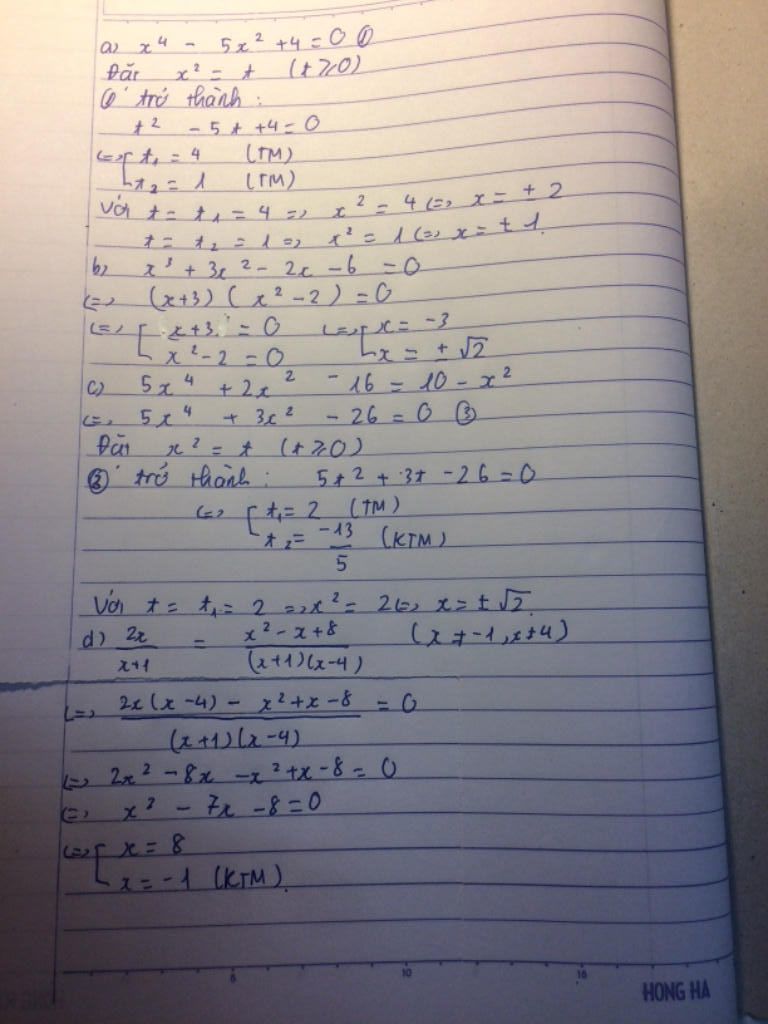 a) x⁴ - 5x² + 4 = 0 ①
Đặt x² = t (t ≥ 0)
① trở thành:
t² - 5t + 4 = 0
<=> [ t₁ = 4 (TM)
t₂ = 1 (TM)
Với t = t₁ = 4 => x² = 4 <=> x = ± 2
t = t₂ = 1 => x² = 1 <=> x = ± 1
b) x³ + 3x² - 2x - 6 = 0
<=> (x+3) (x² - 2) = 0
<=> [ x+3 = 0 <=> [ x = -3
x² - 2 = 0 x = ± √2
c) 5x⁴ + 2x² - 16 = 10 - x²
<=> 5x⁴ + 3x² - 26 = 0 ③
Đặt x² = t (t ≥ 0)
③ trở thành: 5t² + 3t - 26 = 0
<=> [ t₁ = 2 (TM)
t₂ = -13/5 (KTM)
Với t = t₁ = 2 => x² = 2 <=> x = ± √2
d) 2x/(x+1) = (x² - x + 8)/((x+1)(x-4)) (x ≠ -1, x ≠ 4)
<=> (2x(x-4) - x² + x - 8)/((x+1)(x-4)) = 0
<=> 2x² - 8x - x² + x - 8 = 0
<=> x² - 7x - 8 = 0
<=> [ x = 8
x = -1 (KTM)
10
HONG HA